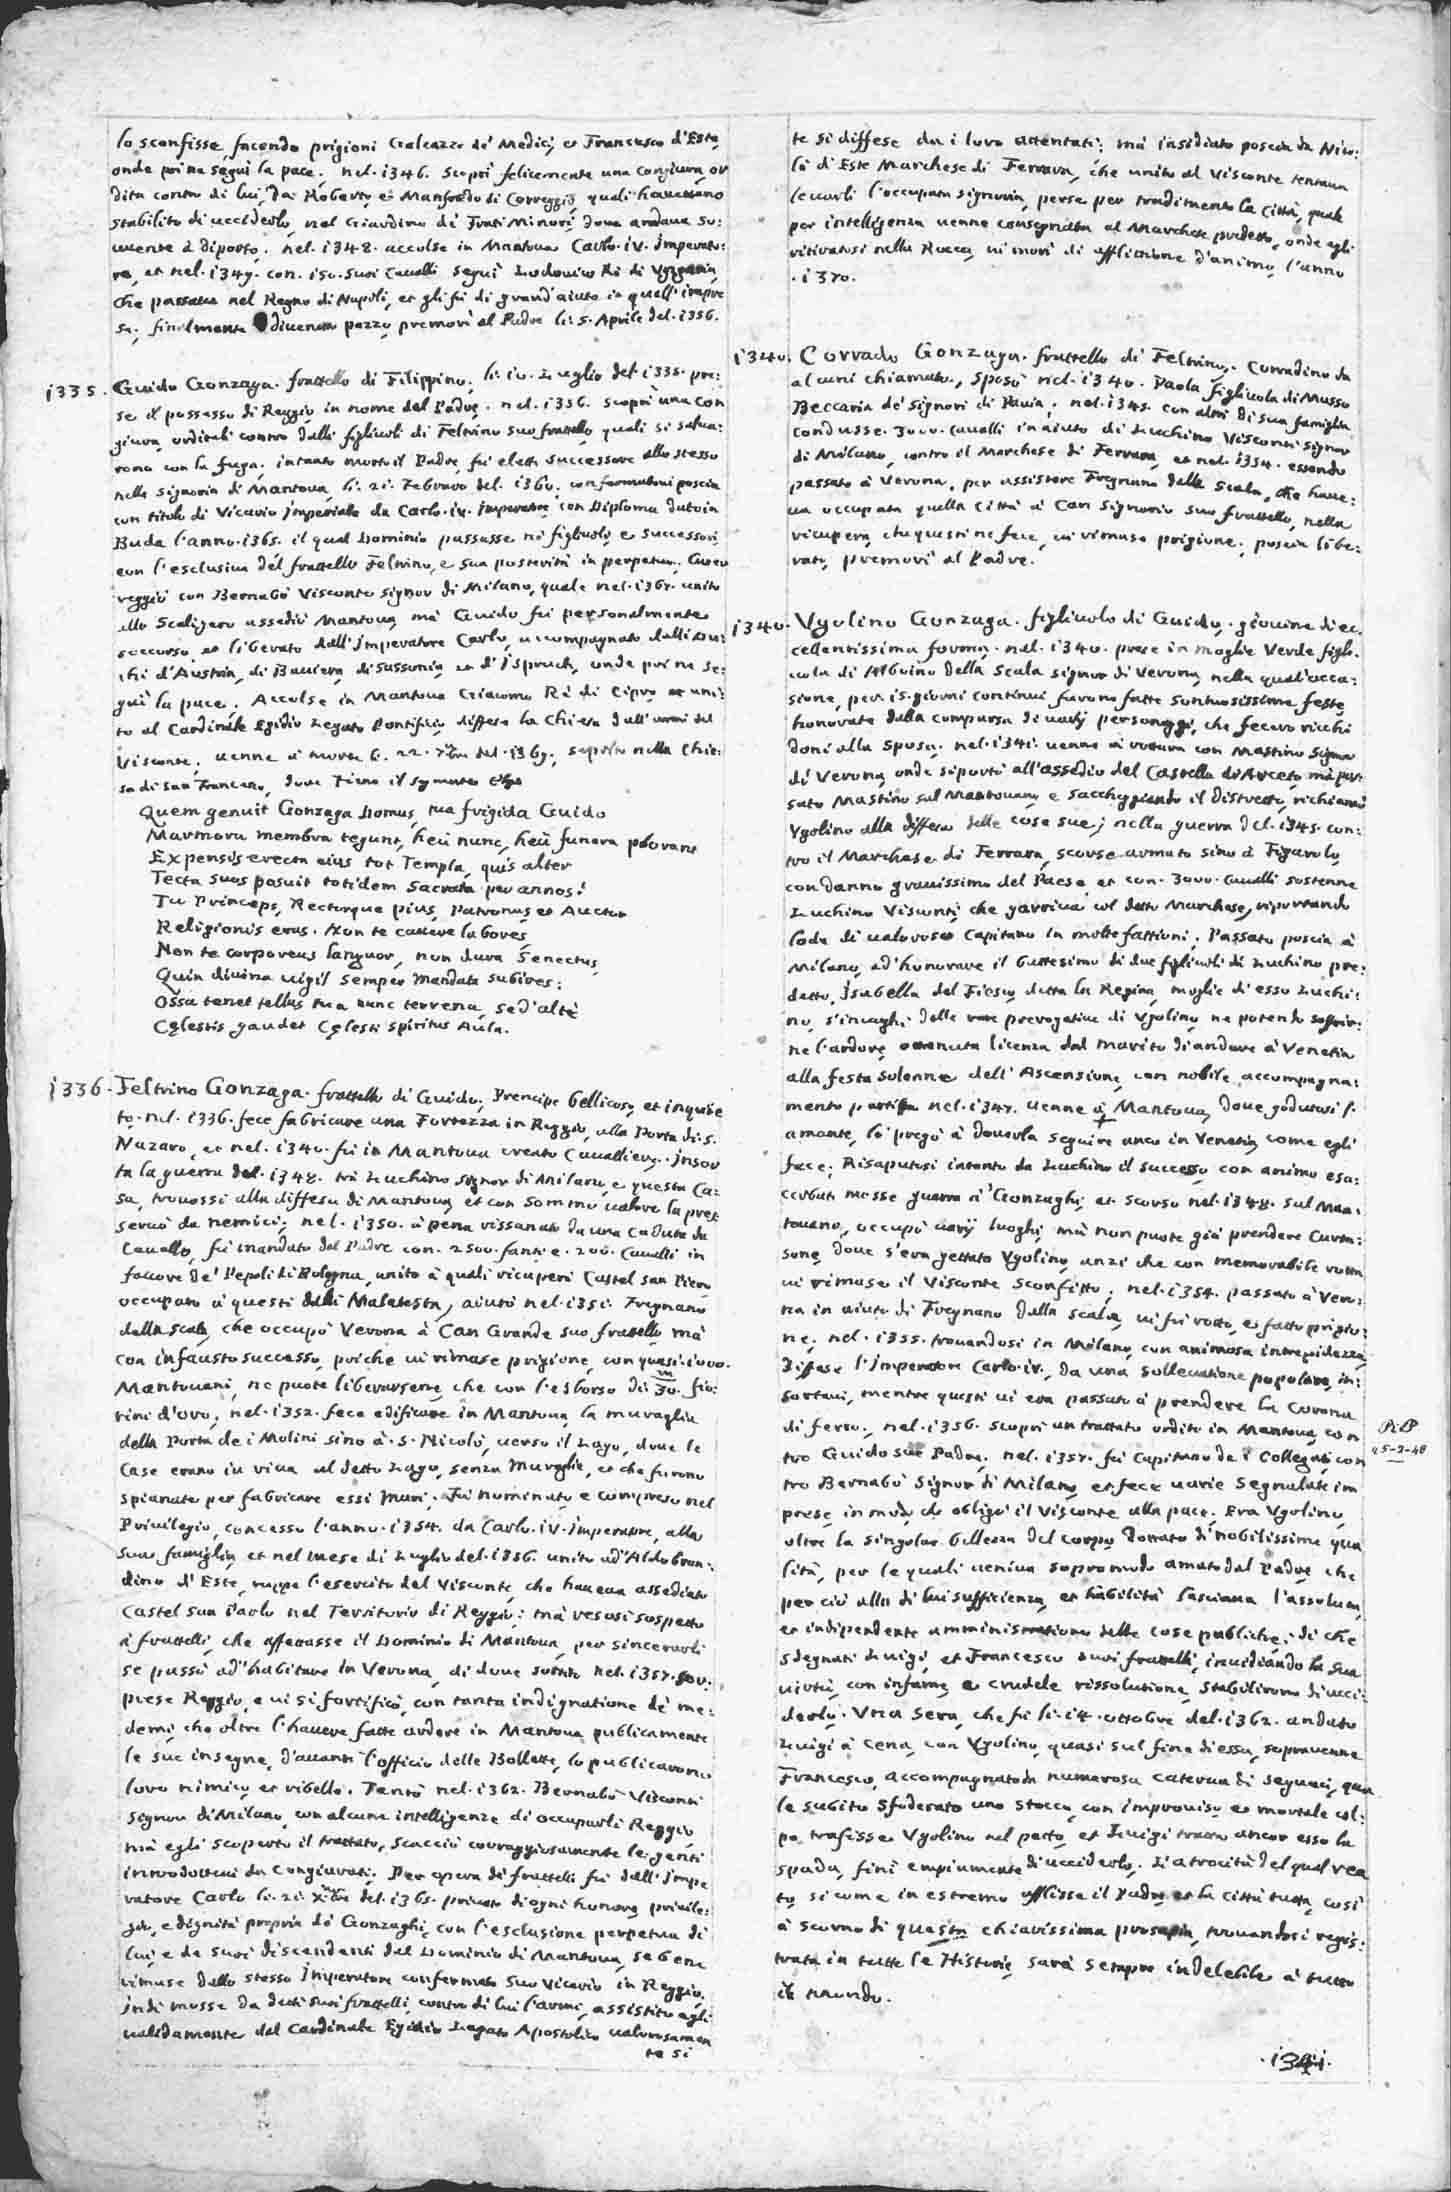 lo sconfisse, facendo prigioni Galeazzo de' Medici, et Francesco d'Este,
onde poi ne seguì la pace. nel. 1346. scoprì felicemente una congiura, or
dita contro di lui, da Roberto, et Manfredo di Correggio, quali haueuano
stabilito di ucciderlo, nel Giardino de' Frati Minori, doue andaua so:
uente à diporto. nel. 1348. accolse in Mantoua Carlo. iv. Imperato:
re, et nel. 1349. con. 150. suoi Caualli seguì Lodouico Rè di Vngaria,
che passaua nel Regno di Napoli, et gli fù di grand'aiuto in quell'impre
sa; finalmente diuenuto pazzo, premorì al Padre li. 5. Aprile del. 1356.
1335. Guido Gonzaga. frattello di Filippino. li. 10. Luglio del. 1335. pre:
se il possesso di Reggio, in nome del Padre. nel. 1356. scoprì una con
giura, orditali contro dalli figliuoli di Feltrino suo frattello, quali si salua:
rono con la fuga; intanto morto il Padre, fù eletto successore allo stesso
nella signoria di Mantoua, li. 21. Febraro del. 1360. confermatoni poscia
con titolo di Vicario Imperiale da Carlo. iv. Imperatore, con Diploma dato in
Buda l'anno. 1365. il qual Dominio passasse ne' figliuoli, e successori,
con l'esclusiua del frattello Feltrino, e sua posterità in perpetuo. Guer
reggiò con Bernabò Visconte signor di Milano, quale nel. 1367. unito
allo Scaligero assediò Mantoua, mà Guido fù personalmente
soccorso, et liberato dall'Imperatore Carlo, accompagnato dalli Du:
chi d'Austria, di Bauiera, di Sassonia, et d'Ispruch, onde poi ne se:
guì la pace. Accolse in Mantoua Giacomo Rè di Cipro, et uni:
to al Cardinale Egidio Legato Pontificio, diffese la Chiesa dall'armi del
Visconte. uenne à morte li. 22. 7bre del. 1369. sepolto nella Chie:
sa di San Francesco, doue
Quem genuit Gonzaga Domus, tua frigida Guido
Marmora membra tegunt, heù nunc, heù funera plorant
Expensis erecta eius tot Templa, quis alter
Tecta suos posuit totidem sacrata per annos?
Tu Princeps, Rectorque pius, Patronus, et Auctor
Religionis eras. Non te cauere labores,
Non te corporeus languor, non dura Senectus,
Quin diuina uigil semper Mandata subires;
Ossa tenet tellus tua nunc terrena, sed'altè
Cęlestis gaudet Cęlesti spiritus Aula.
1336. Feltrino Gonzaga. frattello di Guido, Prencipe bellicoso, et inquie
to. nel. 1336. fece fabricare una Fortezza in Reggio, alla Porta di. S.
Nazaro, et nel. 1340. fù in Mantoua creato Caualliere. Insor
ta la guerra del. 1348. trà Luchino signor di Milano, e questa Ca:
sa, trouossi alla diffesa di Mantoua, et con sommo ualore la pre
seruò da nemici; nel. 1350. à pena rissanato da una caduta da
Cauallo, fù mandato dal Padre con. 2500. fanti e. 200. Caualli in
fauore de' Pepoli di Bologna, unito à quali ricuperò Castel san Piero
occupato à questi dalli Malatesta, aiutò nel. 1351. Fregnano
dalla Scala, che occupò Verona à Can Grande suo frattello, mà
con infausto successo, poiche ui rimase prigione, con quasi. 1000.
Mantouani, ne puote liberarsene, che con l'esborso di. 30.m fio:
rini d'oro. nel. 1352. fece edificare in Mantoua, la muraglia
della Porta de i Molini sino à. S. Nicolò, uerso il Lago, doue le
Case erano in riua al detto Lago, senza Muraglia, et che furono
spianate per fabricare essi Muri. Fù nominato, e compreso nel
Priuilegio, concesso l'anno. 1354. da Carlo. iv. Imperatore, alla
sua famiglia, et nel mese di Luglio del. 1356. unito ad'Aldobran:
dino d'Este, ruppe l'esercito del Visconte, che haueua assediato
Castel San Paolo nel Territorio di Reggio; mà resosi sospetto
à frattelli, che affettasse il Dominio di Mantoua, per sincerarli
se passò ad'habitare in Verona, di doue sortito nel. 1357. sor:
prese Reggio, e ui si fortificò, con tanta indignatione de' me:
demi, che oltre l'hauere fatte ardere in Mantoua publicamente
le sue insegne, d'auanti l'officio delle Bollette, lo publicarono
loro nimico, et ribello. Tentò nel. 1362. Bernabò Visconti
signore di Milano, con alcune intelligenze di occuparli Reggio,
mà egli scoperto il trattato, scacciò coraggiosamente le genti
introdotteui da Congiurati; Per opera de' frattelli fù dall'Impe
ratore Carlo li. 21. Xbre del. 1365. priuato di ogni honore, priuile:
gio, e dignità propria de' Gonzaghi, con l'esclusione perpetua di
lui, e de suoi discendenti dal Dominio di Mantoua, se bene
rimase dallo stesso Imperatore confermato suo Vicario in Reggio.
Indi mosse da detti suoi frattelli contro di lui l'armi, assistito egli
ualidamente dal Cardinale Egidio Legato Apostolico ualorosamen
te si
te si diffese da i loro attentati; mà insidiato poscia da Nico:
lò d'Este Marchese di Ferrara, che unito al Visconte tentaua
leuarli l'occupata signoria, perse per tradimento la Città, quale
per intelligenza uenne consegnata al Marchese predetto, onde egli
ritiratosi nella Rocca, ui morì di afflittione d'animo, l'anno
. 1370.
1340. Corrado Gonzaga. frattello di Feltrino. Corradino da
alcuni chiamato, sposò nel. 1340. Paola figliuola di Musso
Beccaria de' signori di Pauia; nel. 1345. con altri di sua famiglia
condusse. 3000. Caualli in aiuto di Luchino Visconti signor
di Milano, contro il Marchese di Ferrara, et nel. 1354. essendo
passato à Verona, per assistere Fregnano dalla Scala, che haue:
ua occupata quella Città à Can Signorio suo frattello, nella
ricupera, che questi ne fece, ui rimase prigione; poscia libe:
rato, premorì al Padre.
1340. Vgolino Gonzaga. figliuolo di Guido. giouine di ec:
cellentissima forma. nel. 1340. prese in moglie Verde figli:
uola di Alboino della Scala signor di Verona, nella qual'occa:
sione, per. 15. giorni continui furono fatte sontuosissime feste,
honorate dalla comparsa di uarij personaggi, che fecero ricchi
doni alla sposa. nel. 1341. uenne à rottura con Mastino signor
di Verona, onde si portò all'assedio del Castello di Arceto, mà pas:
sato Mastino sul Mantouano, e saccheggiando il distretto, richiamò
Vgolino alla diffesa delle cose sue; nella guerra del. 1345. con:
tro il Marchese di Ferrara, scorse armato sino à Figarolo,
con danno grauissimo del Paese, et con. 3000. Caualli sostenne
Luchino Visconti, che garriua col detto Marchese, riportando
lode di ualoroso Capitano in molte fattioni. Passato poscia à
Milano, ad'honorare il battesimo di due figliuoli di Luchino pre:
detto, Isabella del Fiesco, detta la Regina, moglie di esso Luchi:
no, s'inuaghì delle rare prerogatiue di Vgolino, ne potendo soffrir:
ne l'ardore, ottenuta licenza dal marito di andare à Venetia
alla festa solenne dell'Ascensione, con nobile accompagna:
mento partissi nel. 1347. uenne à Mantoua, doue godutosi l'
amante, lo pregò à douerla seguire anco in Venetia, come egli
fece; Risaputosi intanto da Luchino il successo, con animo esa:
cerbato mosse guerra à Gonzaghi, et scorso nel. 1348. sul Man:
touano, occupò uarij luoghi, mà non puote già prendere Curta:
tone, doue s'era gettato Vgolino, anzi che con memorabile rotta
ui rimase il Visconte sconfitto. nel. 1354. passato à Vero:
na in aiuto di Fregnano dalla Scala, ui fù rotto, et fatto prigio:
ne. nel. 1355. trouandosi in Milano, con animosa intrepidezza
diffese l'Imperatore Carlo. iv. da una solleuatione popolare, in:
sortaui, mentre questi ui era passato à prendere la corona
di ferro. nel. 1356. scoprì un trattato ordito in Mantoua, con
tro Guido suo Padre. nel. 1357. fù Capitano de i Collegati, con
tro Bernabò signor di Milano, et fece uarie segnalate im
prese, in modo che obligò il Visconte alla pace. Era Vgolino,
oltre la singolar bellezza del corpo, dottato di nobilissime qua
lità, per le quali ueniua sopramodo amato dal Padre, che
per ciò alla di lui sufficienza, et habilità lasciaua l'assoluta,
et indipendente amministratione delle cose publiche; di che
sdegnati Luigi, et Francesco suoi frattelli, inuidiando la sua
uirtù, con infame, e crudele rissolutione, stabilirono di ucci:
derlo. Vna sera, che fù li. 14. ottobre del. 1362. andato
Luigi à cena, con Vgolino, quasi sul fine di essa, soprauenne
Francesco, accompagnato da numerosa caterua di seguaci, qua
le subito sfoderato uno stocco, con improuiso, et mortale col:
po, trafisse Vgolino nel petto, et Luigi tratta ancor esso la
spada, finì empiamente di ucciderlo. L'atrocità del qual rea
to, si come in estremo afflisse il Padre, et la città tutta, così
à scorno di questa chiarissima prosapia, trouandosi regis:
trata in tutte le Historie, sarà sempre indelebile à tutto
il Mondo.
R.P
25-2-48
. 1341.